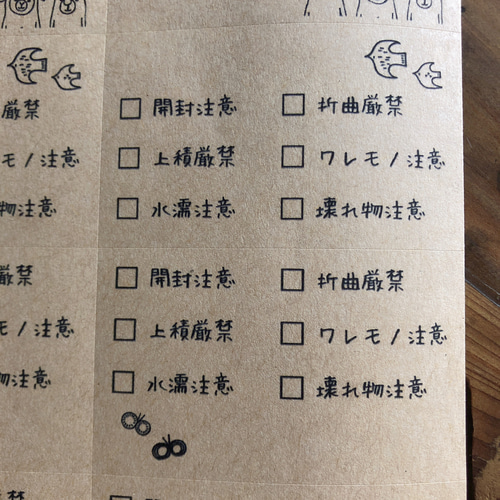 厳禁
モノ注意
物注意
□ 開封注意 □ 折曲厳禁
□ 上積厳禁 □ ワレモノ注意
□ 水濡注意 □ 壊れ物注意
厳禁
モノ注意
物注意
□ 開封注意 □ 折曲厳禁
□ 上積厳禁 □ ワレモノ注意
□ 水濡注意 □ 壊れ物注意